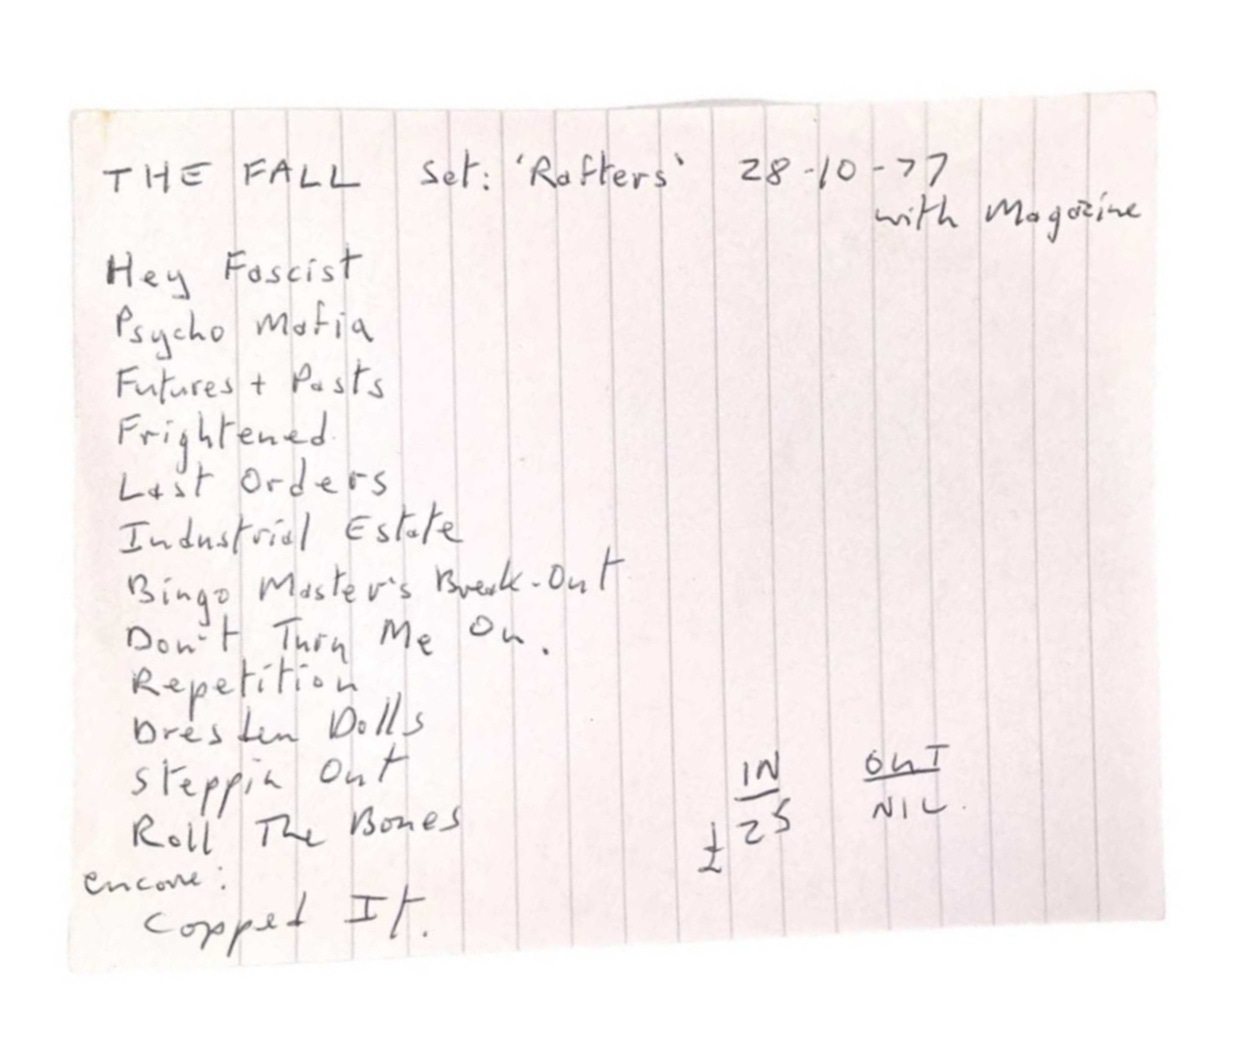 THE FALL set: 'Rafters' 28-10-77
with Magazine
Hey Fascist
Psycho Mafia
Futures + Pasts
Frightened
Last Orders
Industrial Estate
Bingo Master's Break-Out
Don't Turn Me On.
Repetition
Dresden Dolls
Steppin Out
Roll The Bones
encore:
Copped It.
IN OUT
£25 NIL.